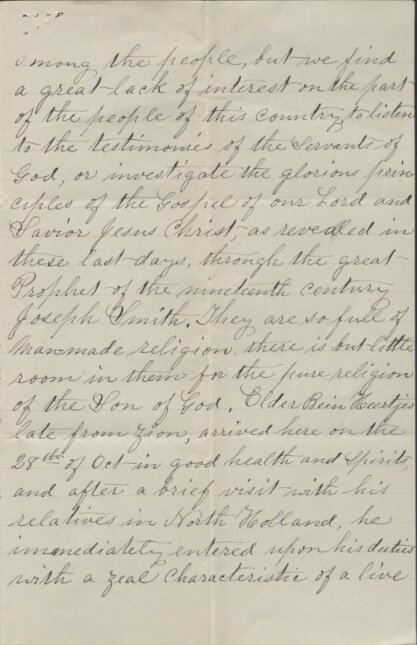 among the people, but we find
a great lack of interest on the part
of the people of this country, to listen
to the testimonies of the Servants of
God, or investigate the glorious prin-
ciples of the Gospel of our Lord and
Savior Jesus Christ, as revealed in
these last days, through the great
Prophet of the nineteenth century
Joseph Smith. They are so full of
man-made religion, there is but little
room in them for the pure religion
of the Son of God. Elder Bein Heertjes
late from Zion, arrived here on the
28th of Oct in good health and spirits
and after a brief visit with his
relatives in North Holland, he
immediately entered upon his duties
with a zeal characteristic of a live